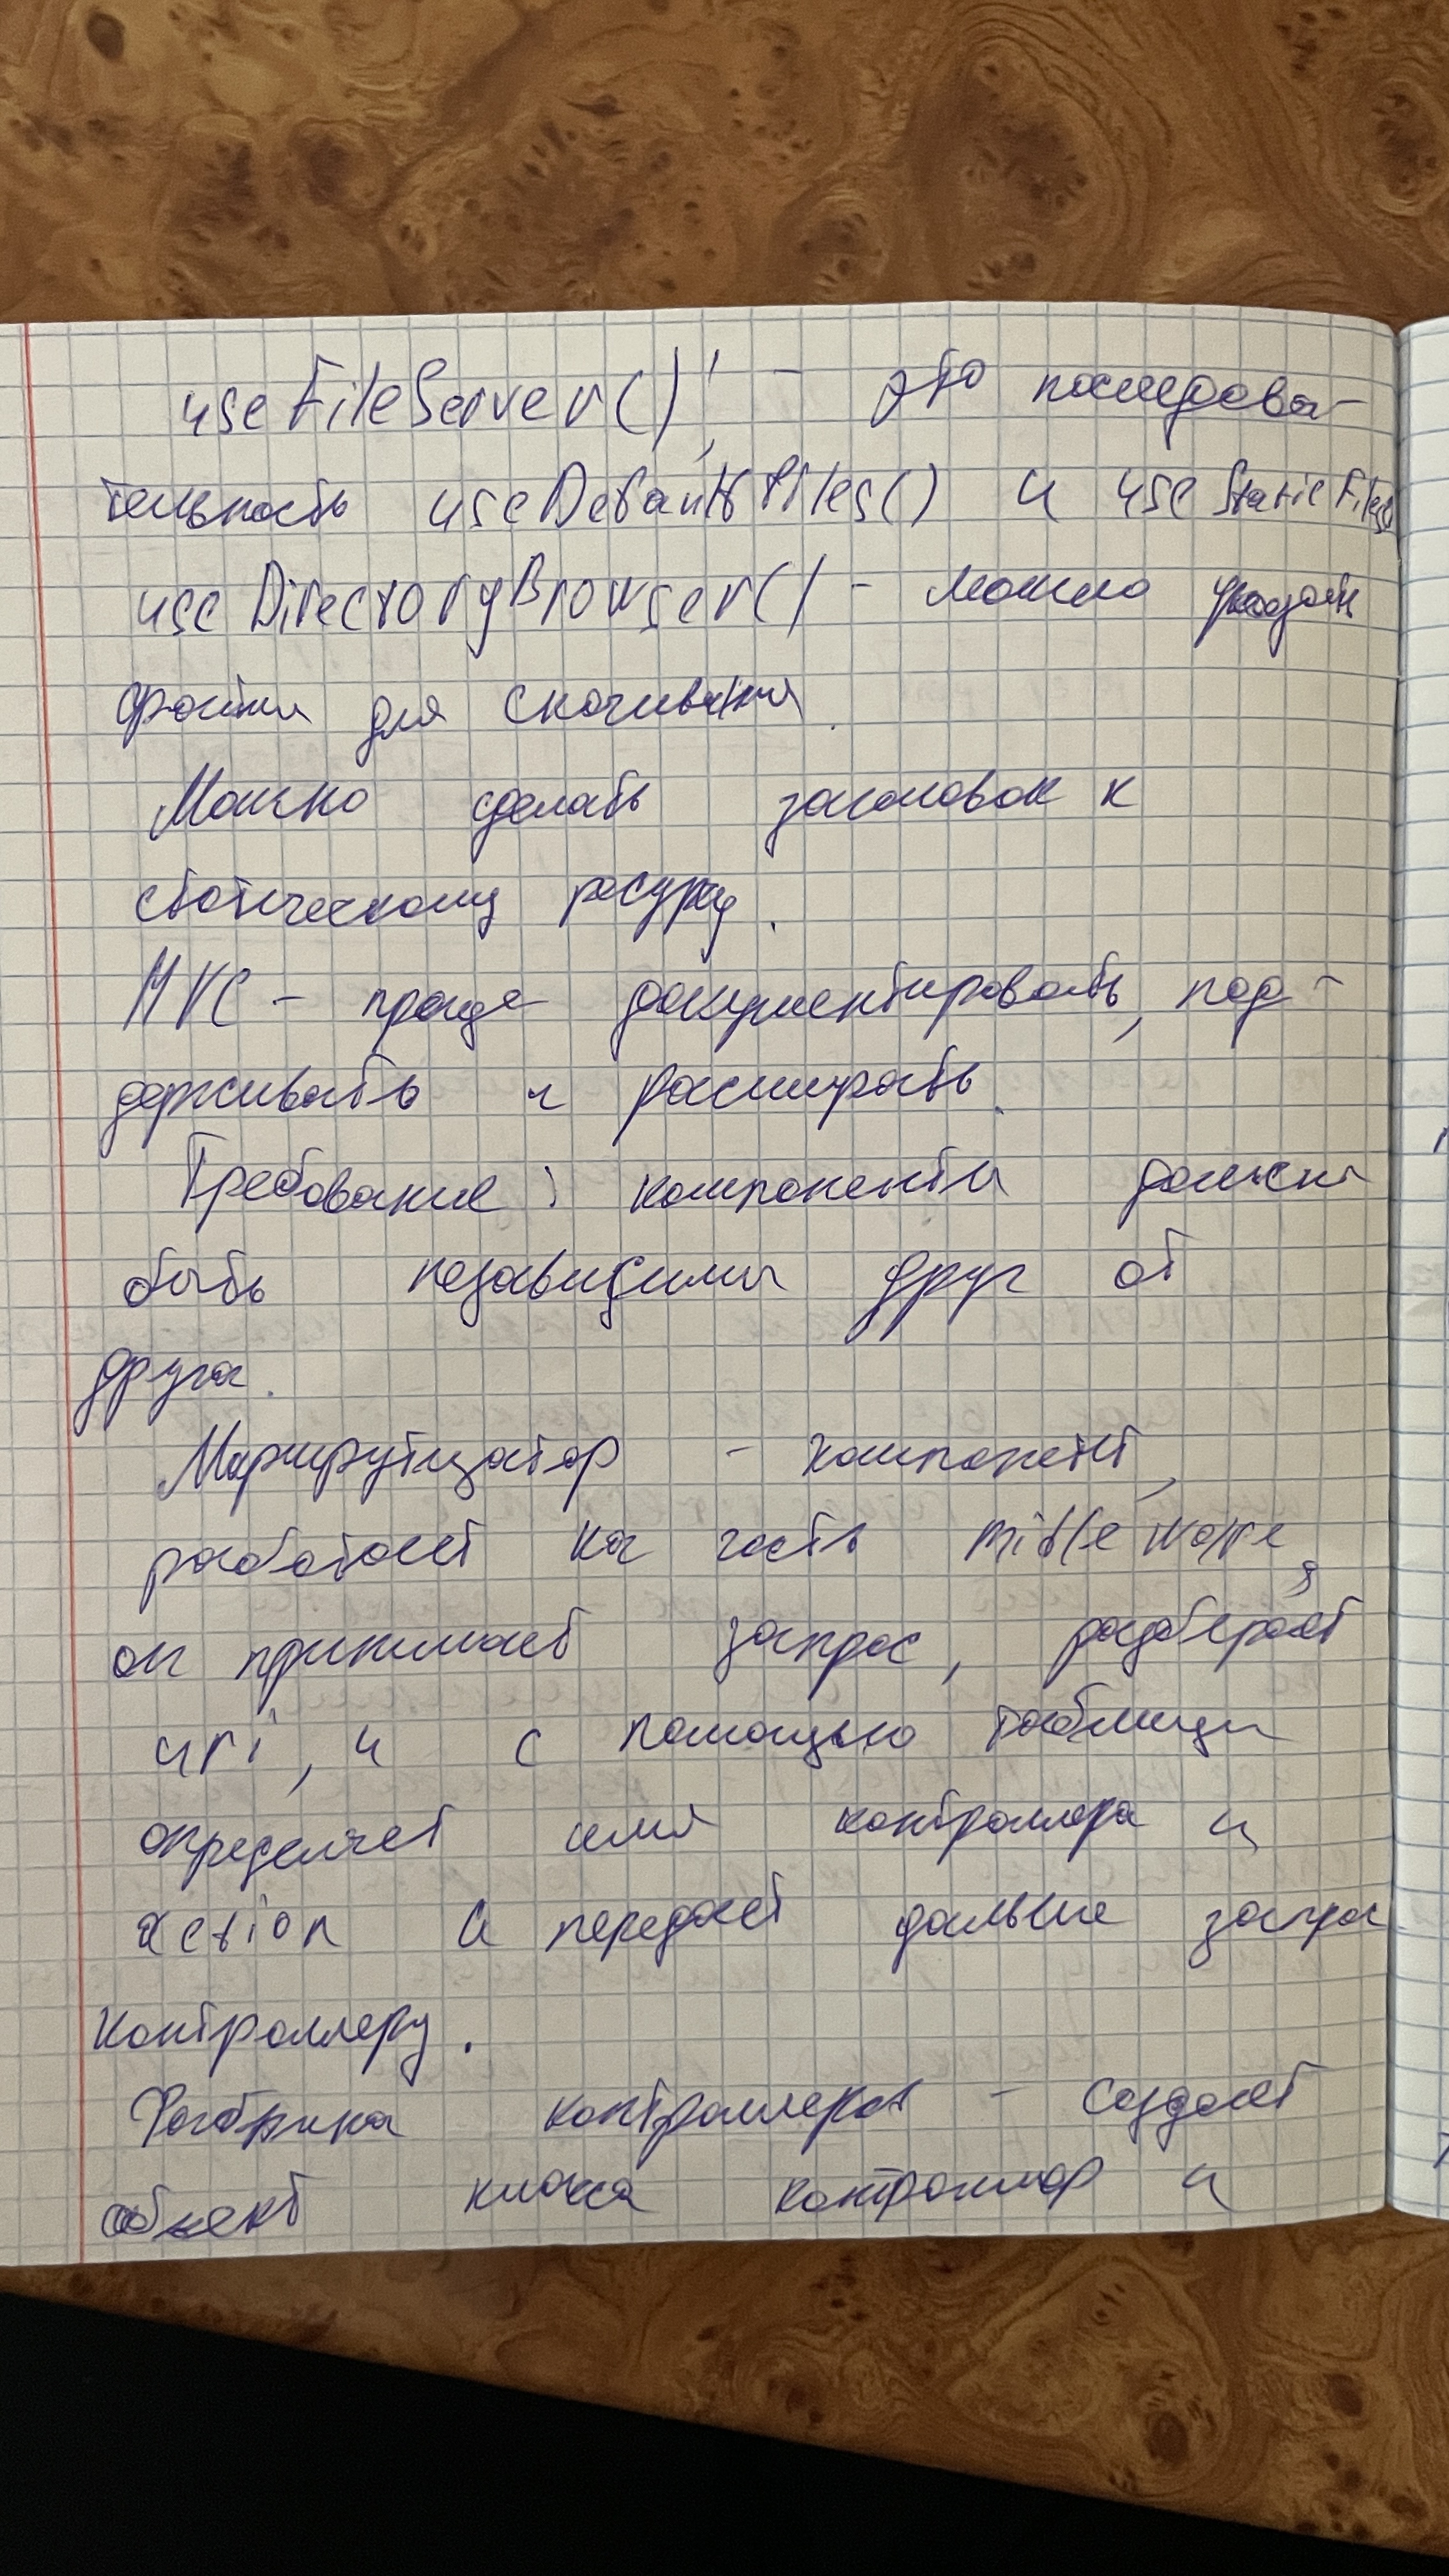 useFileServer(); - это последова-
тельность useDefaultFiles() и useStaticFiles()
useDirectoryBrowser() - можно указать
файлы для скачивания.
Можно сделать заголовок к
статическому ресурсу.
MVC - проще документировать, под-
держивать и расширять.
Требование: компоненты должны
быть независимы друг от
друга.
Маршрутизатор - компонент,
работает как часть middleware,
он принимает запрос, разберает
uri, и с помощью таблицы
определяет имя контроллера и
action и передает дальше запрос
контроллеру.
Фабрика контроллеров - создает
объект класса контроллер и